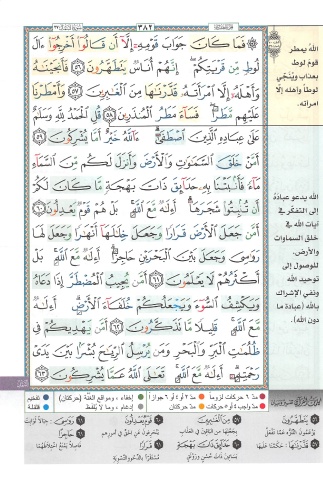 ٣٨٢
فَمَا كَانَ جَوَابَ قَوْمِهِ إِلَّا أَن قَالُوا أَخْرِجُوا ءَالَ
لُوطٍ مِّن قَرْيَتِكُمْ إِنَّهُمْ أُنَاسٌ يَتَطَهَّرُونَ ٥٦ فَأَنجَيْنَاهُ
وَأَهْلَهُ إِلَّا امْرَأَتَهُ قَدَّرْنَاهَا مِنَ الْغَابِرِينَ ٥٧ وَأَمْطَرْنَا
عَلَيْهِم مَّطَرًا فَسَاءَ مَطَرُ الْمُنذَرِينَ ٥٨ قُلِ الْحَمْدُ لِلَّهِ وَسَلَامٌ
عَلَى عِبَادِهِ الَّذِينَ اصْطَفَى ءَاللَّهُ خَيْرٌ أَمَّا يُشْرِكُونَ ٥٩
أَمَّنْ خَلَقَ السَّمَاوَاتِ وَالْأَرْضَ وَأَنزَلَ لَكُم مِّنَ السَّمَاءِ
مَاءً فَأَنبَتْنَا بِهِ حَدَائِقَ ذَاتَ بَهْجَةٍ مَّا كَانَ لَكُمْ
أَن تُنبِتُوا شَجَرَهَا أَءِلَهٌ مَّعَ اللَّهِ بَلْ هُمْ قَوْمٌ يَعْدِلُونَ ٦٠
أَمَّن جَعَلَ الْأَرْضَ قَرَارًا وَجَعَلَ خِلَالَهَا أَنْهَارًا وَجَعَلَ لَهَا
رَوَاسِيَ وَجَعَلَ بَيْنَ الْبَحْرَيْنِ حَاجِزًا أَءِلَهٌ مَّعَ اللَّهِ بَلْ
أَكْثَرُهُمْ لَا يَعْلَمُونَ ٦١ أَمَّن يُجِيبُ الْمُضْطَرَّ إِذَا دَعَاهُ
وَيَكْشِفُ السُّوءَ وَيَجْعَلُكُمْ خُلَفَاءَ الْأَرْضِ أَءِلَهٌ
مَّعَ اللَّهِ قَلِيلًا مَّا تَذَكَّرُونَ ٦٢ أَمَّن يَهْدِيكُمْ فِي
ظُلُمَاتِ الْبَرِّ وَالْبَحْرِ وَمَن يُرْسِلُ الرِّيَاحَ بُشْرًا بَيْنَ يَدَيْ
رَحْمَتِهِ أَءِلَهٌ مَّعَ اللَّهِ تَعَالَى اللَّهُ عَمَّا يُشْرِكُونَ ٦٣
الله يمطر
قوم لوط
بعذاب ويُنجّي
لوطاً وأهله إلّا
امرأته.
الله يدعو عبادهُ
إلى التفكّر في
آيات الله في
خلق السماوات
والأرض،
للوصول إلى
توحيد الله
ونفي الإشراك
بالله (عبادة ما
دون الله).
مدّ ٦ حركات لزوماً مدّ ٢ أو ٤ أو ٦ جوازاً إخفاء، ومواقع الغنّة (حركتان) تفخيم
مدّ واجب ٤ أو ٥ حركات مدّ حركتان إدغام، وما لا يُلفظ قلقلة